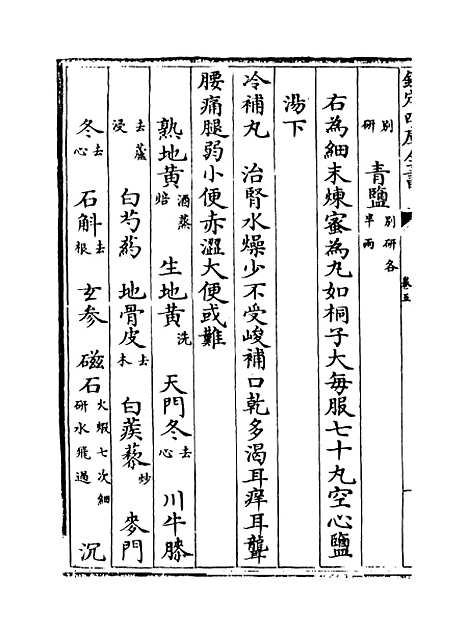 欽定四庫全書
卷五
別研 青鹽別研各半兩
右為細末煉蜜為丸如桐子大每服七十丸空心鹽
湯下
冷補丸 治腎水燥少不受峻補口乾多渴耳痒耳聾
腰痛腿弱小便赤澀大便或難
熟地黄酒蒸焙 生地黄洗 天門冬去心 川牛膝
去蘆浸 白芍藥 地骨皮去木 白蒺藜炒 麥門
冬去心 石斛去根 玄參 磁石火煅七次細研水飛過 沉